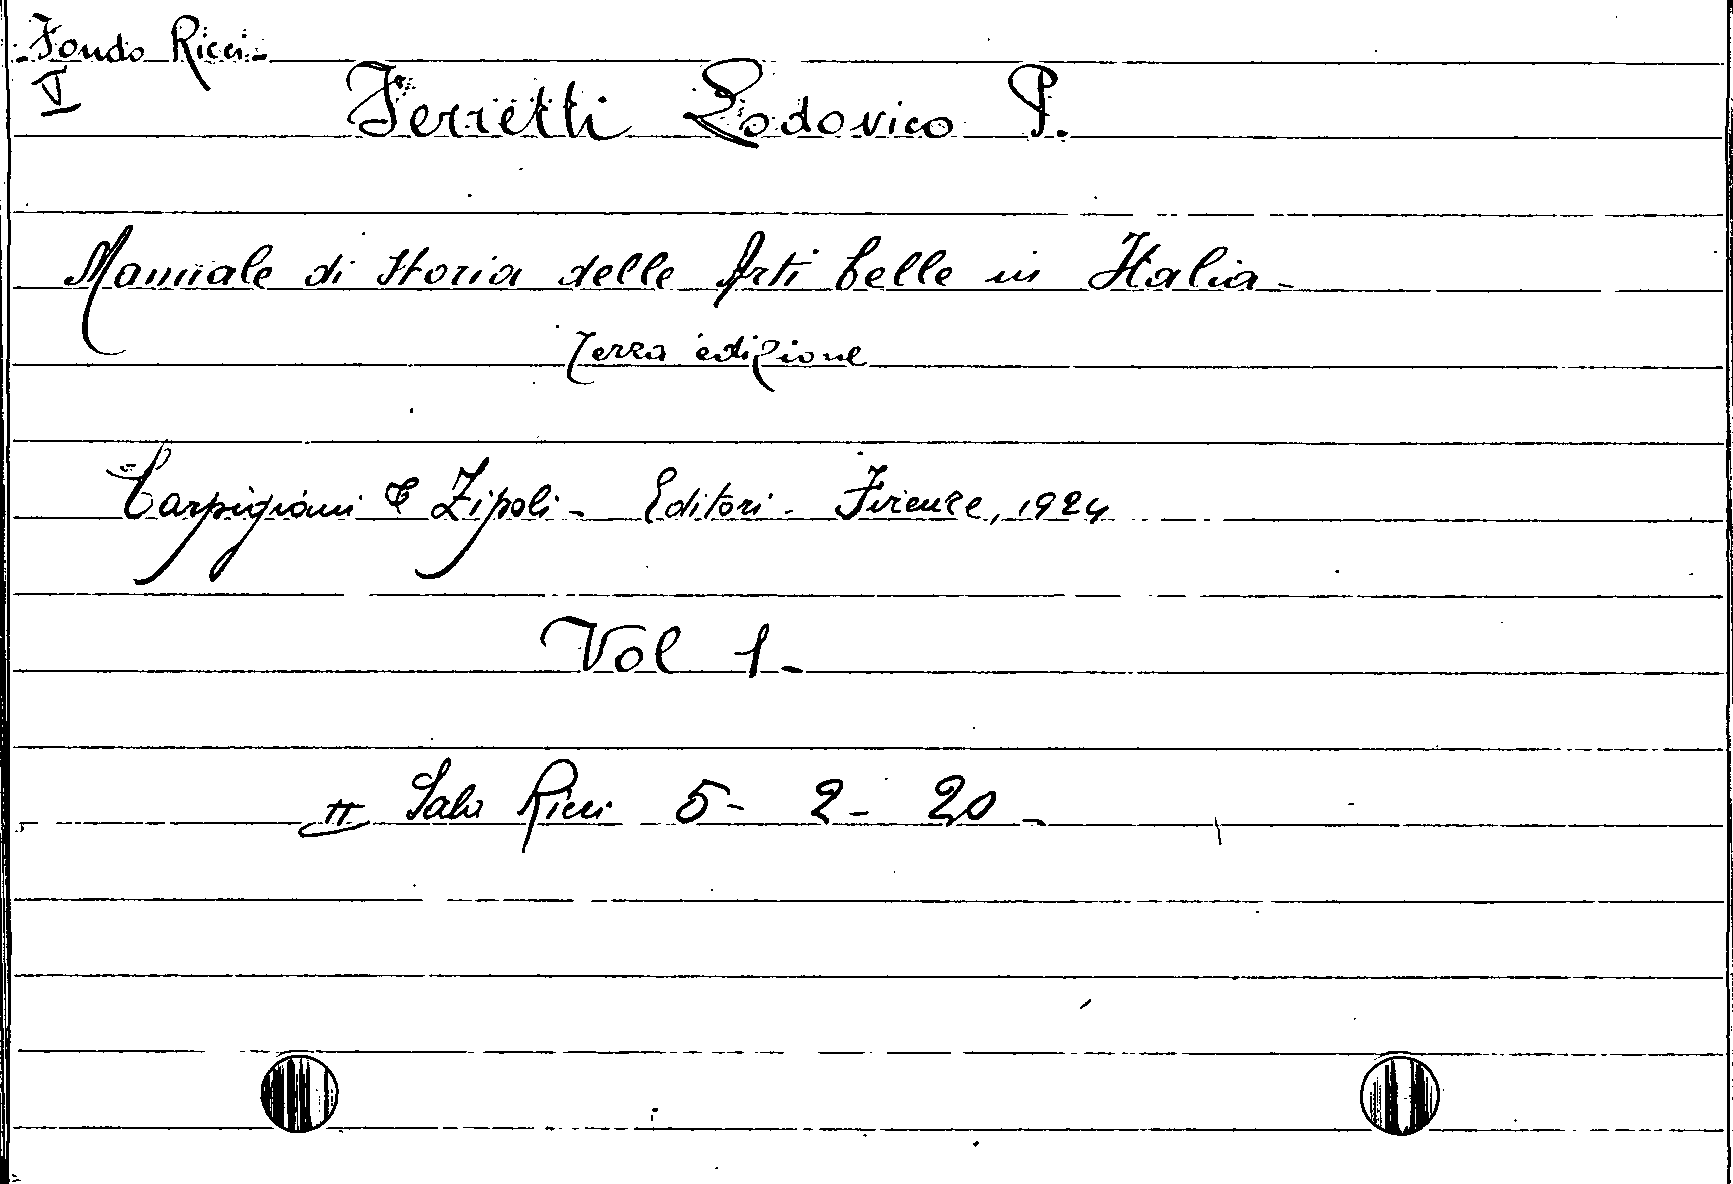 - Fondo Ricci -
V
Ferretti Lodovico P.
Manuale di Storia delle Arti belle in Italia -
Terza edizione
Carpigiani & Zipoli - Editori - Firenze, 1924
Vol 1 -
II Sala Ricci 5 - 2 - 20 -